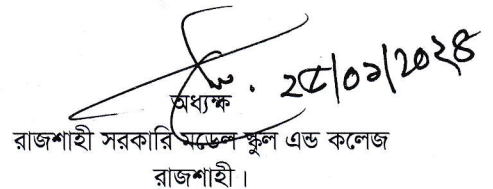 ২৫/০১/২০২৪
অধ্যক্ষ
রাজশাহী সরকারি মডেল স্কুল এন্ড কলেজ
রাজশাহী।